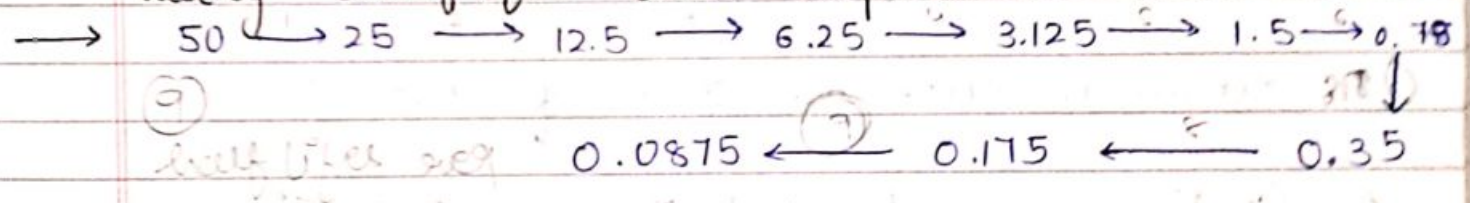 → 50 → 25 → 12.5 → 6.25 → 3.125 → 1.5 → 0.78
↓
0.0875 ← 0.175 ← 0.35